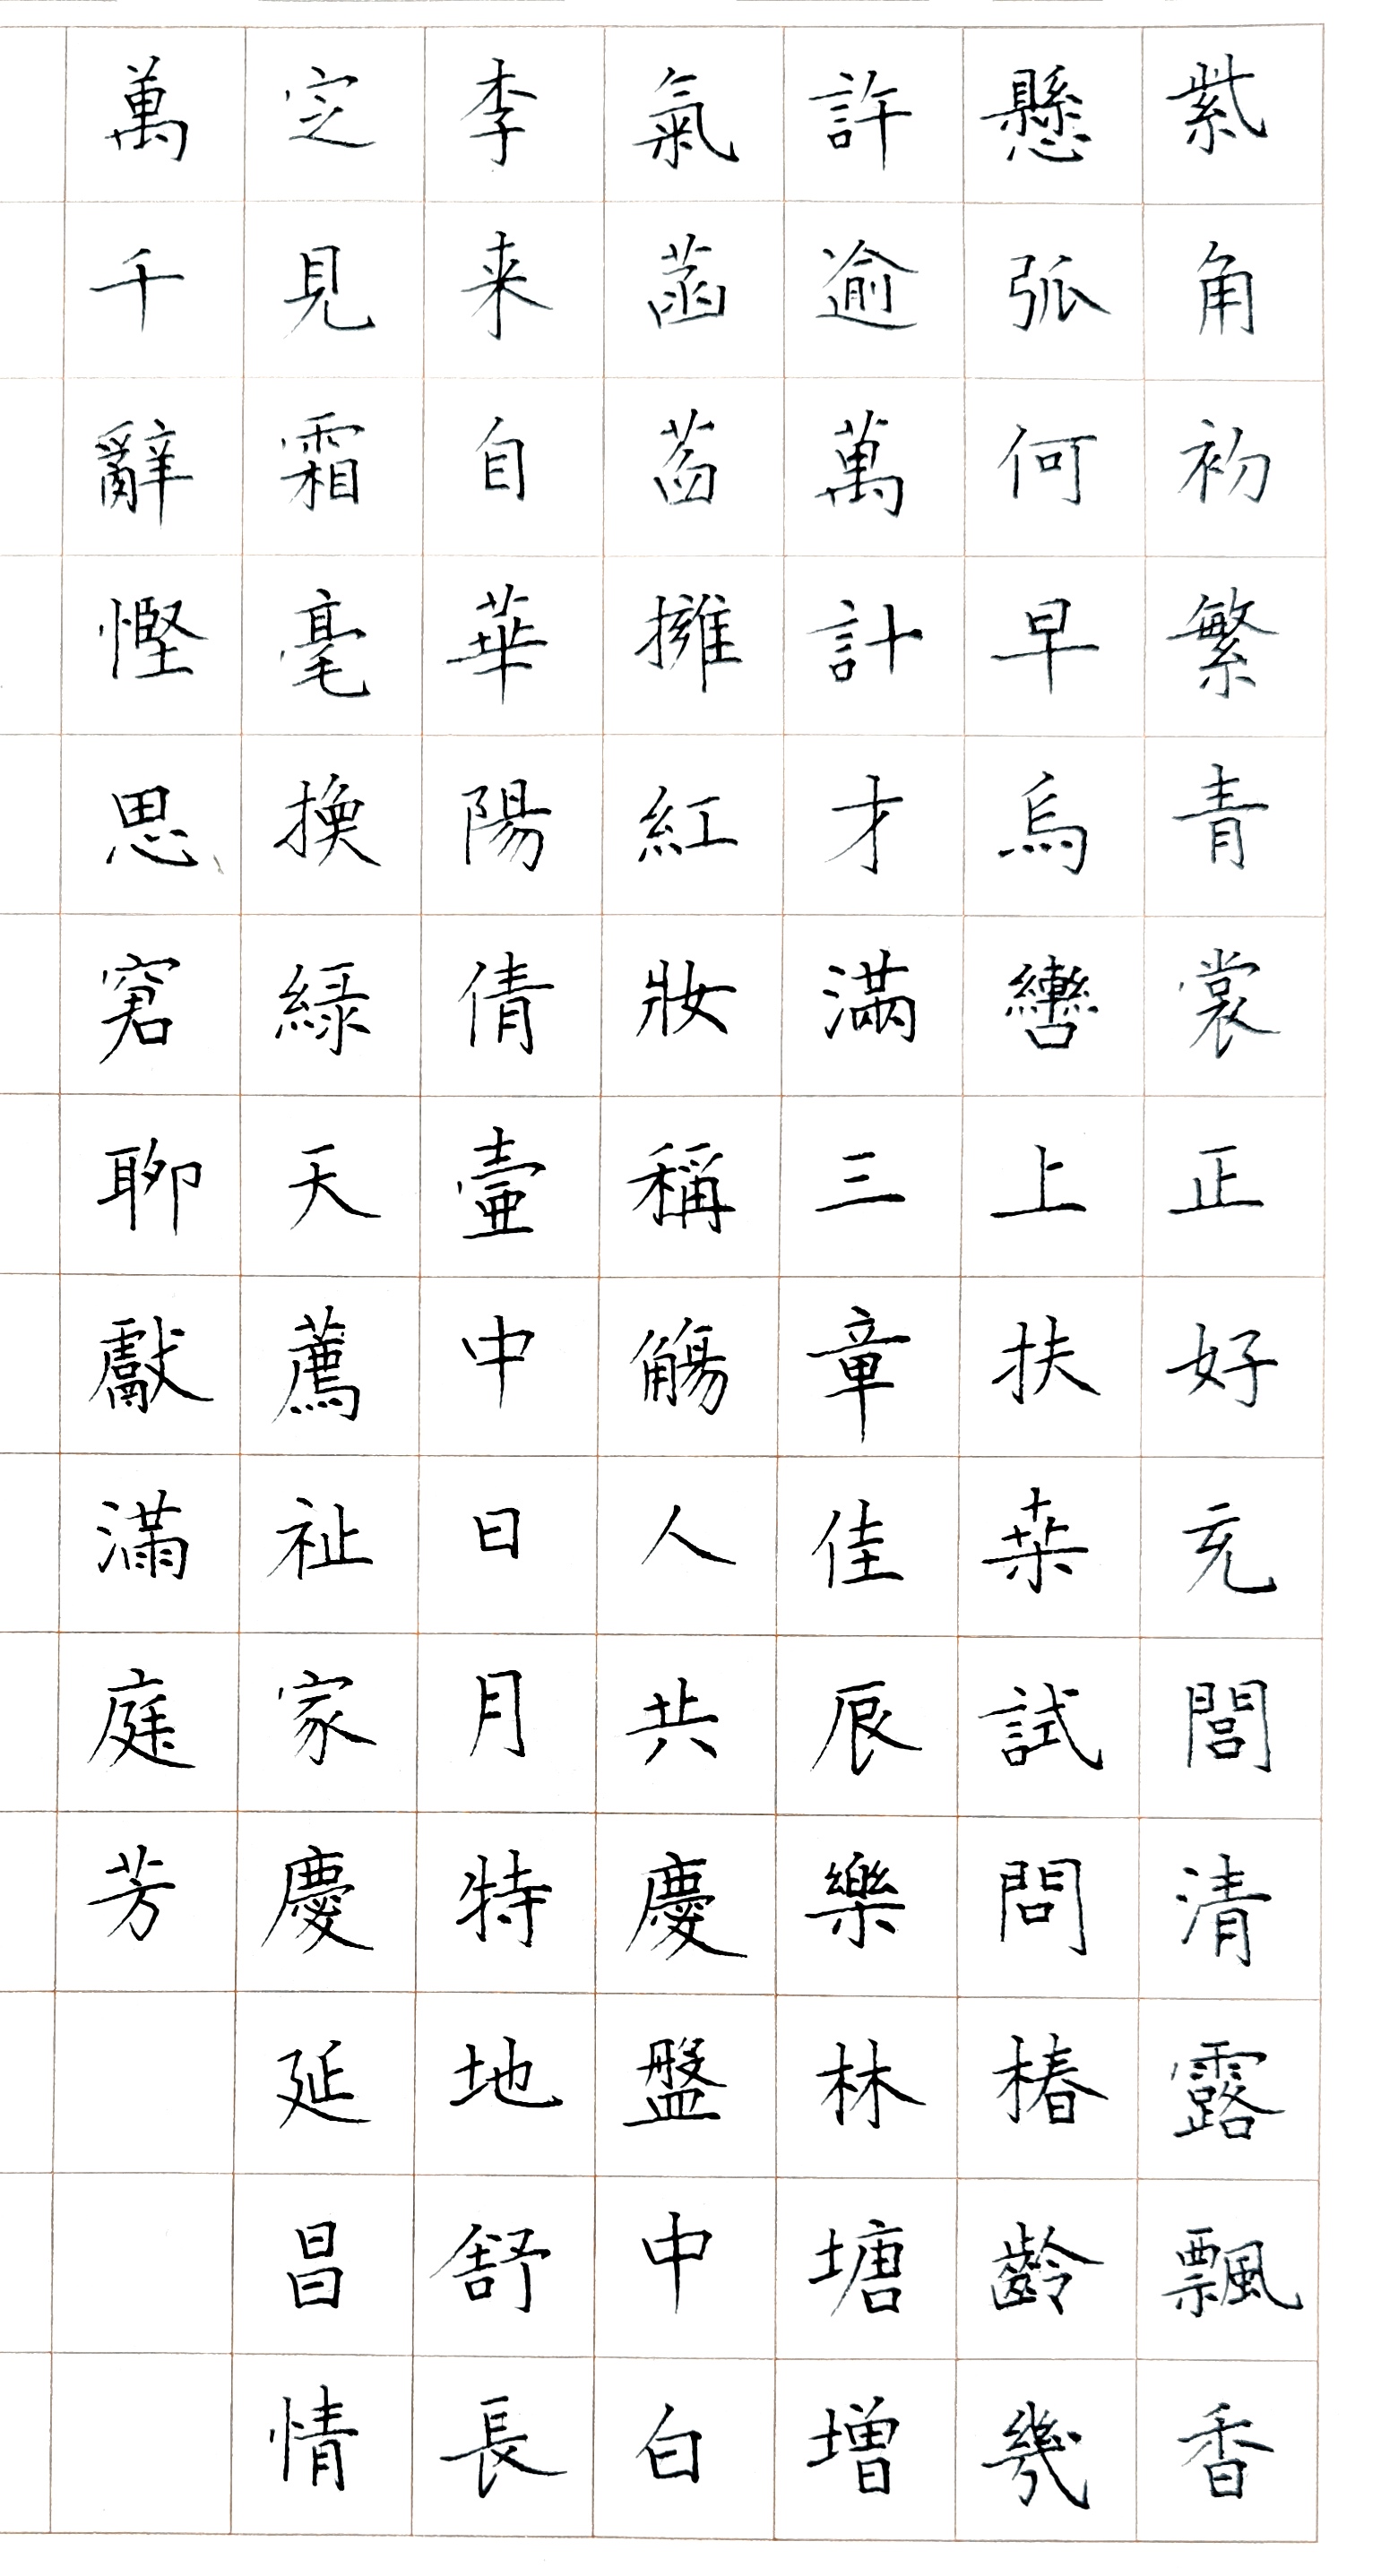 紫角初繁青裳正好充閭清露飄香
懸弧何早烏轡上扶桒試問椿齡幾
許逾萬計才滿三章佳辰樂林塘增
氣菡萏擁紅妝稱觴人共慶盤中白
李来自華陽倩壷中日月特地舒長
定見霜毫換綠天薦祉家慶延昌情
萬千辭慳思窘聊獻滿庭芳